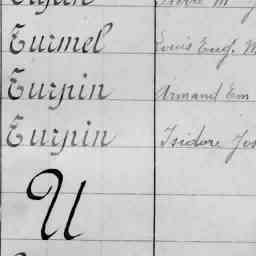 Turmel Louis Eug. M
Turpin Armand Em
Turpin Isidore Jos
U